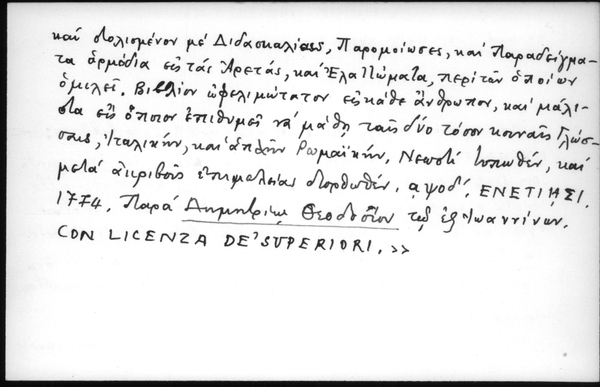 καὶ στολισμένον μὲ Διδασκαλίαις, Παρομοίωσες, καὶ Παραδείγμα-
τα ἁρμόδια εἰς τὰς Ἀρετάς, καὶ Ἐλαττώματα, περὶ τῶν ὁποίων
ὁμιλεῖ. Βιβλίον ὠφελιμώτατον εἰς κάθε ἄνθρωπον, καὶ μάλι-
στα εἰς ὅποιον ἐπιθυμεῖ νὰ μάθῃ ταῖς δύο τόσον κοιναῖς Γλώσ-
σαις, Ἰταλικήν, καὶ ἁπλῆν Ῥωμαϊκήν. Νεωστὶ τυπωθέν, καὶ
μετὰ ἀκριβοῦς ἐπιμελείας διορθωθέν. αψοδ΄. ΕΝΕΤΙΗΣΙ.
1774. Παρὰ Δημητρίῳ Θεοδοσίου τῷ ἐξ Ἰωαννίνων.
CON LICENZA DE' SUPERIORI. >>